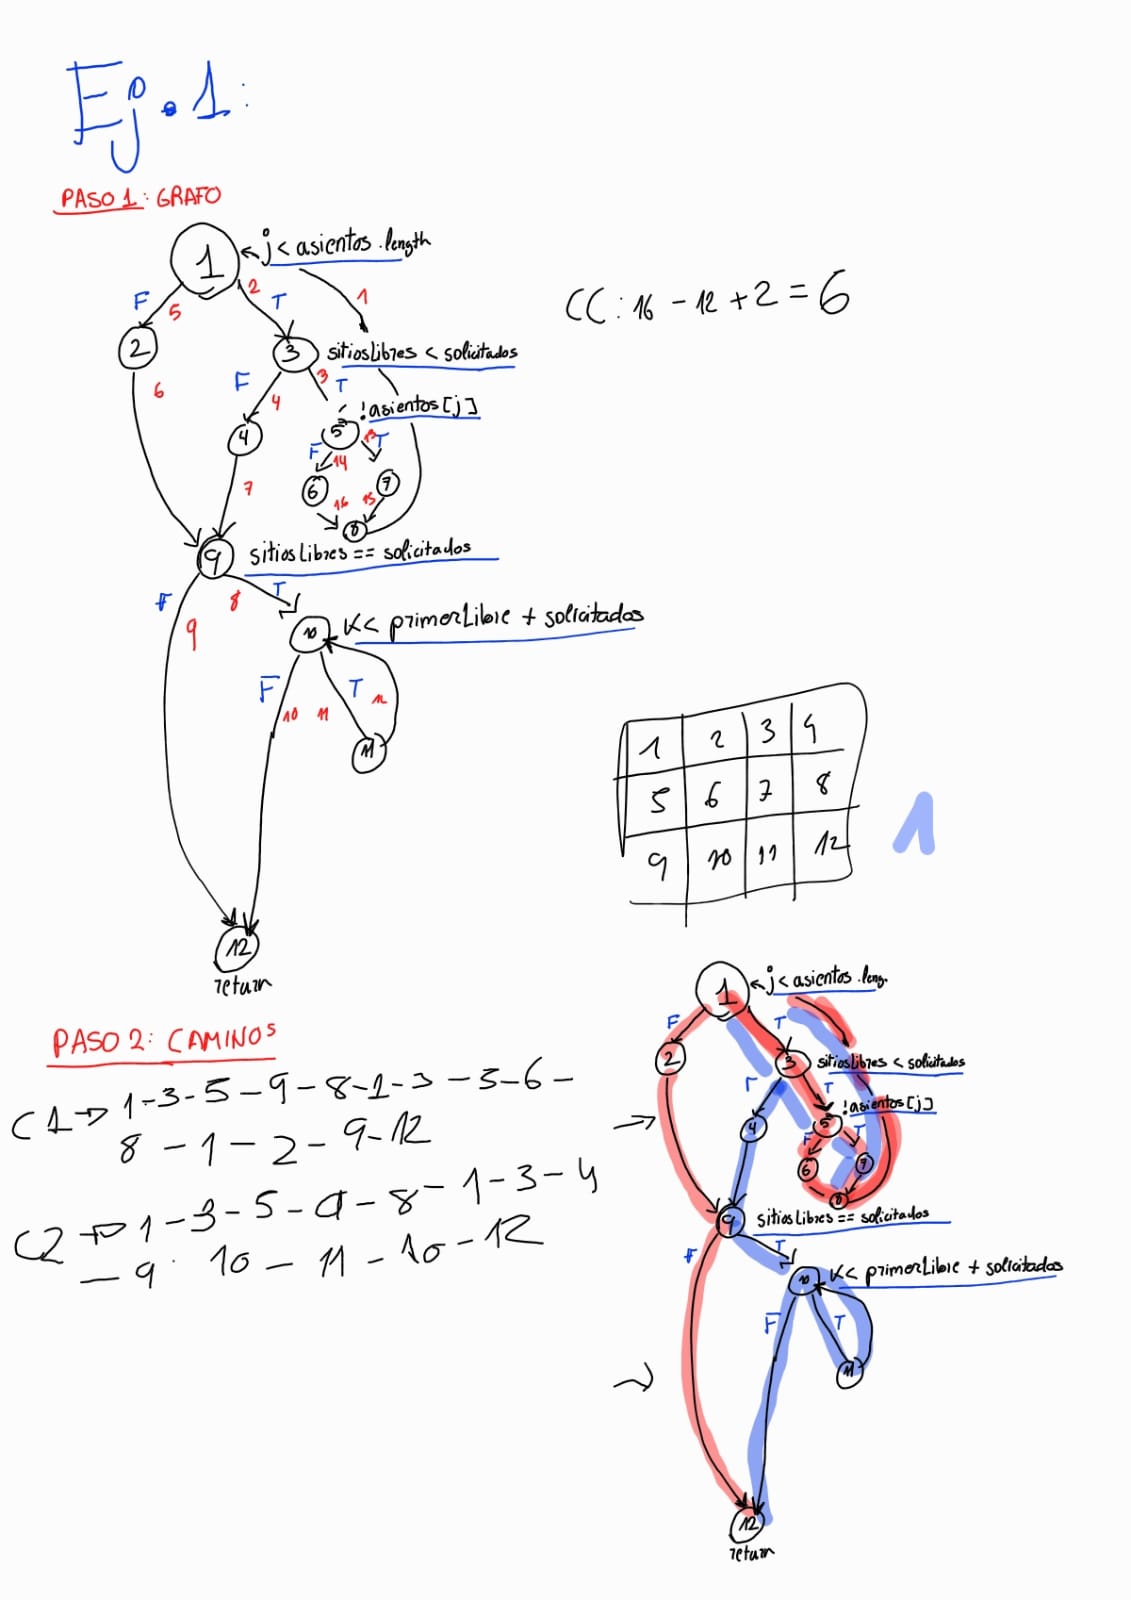 Ej.1:
PASO 1: GRAFO
1 j < asientos.length
F 5 2 T 1
2 3 sitiosLibres < solicitados
6 F 4 3 T
4 5 !asientos[j]
F 14 13 T
7 6 16 15 7
8
9 sitiosLibres == solicitados
F 9 8 T
10 K< primerLibre + solicitados
F 10 11 T 12
11
12
return
CC: 16 - 12 + 2 = 6
1 2 3 4
5 6 7 8
9 10 11 12
1
PASO 2: CAMINOS
C1 → 1-3-5-9-8-1-3-5-6-
8-1-2-9-12
C2 → 1-3-5-9-8-1-3-4
-9 10-11-10-12
1 j < asientos.leng.
F T
2 3 sitiosLibres < solicitados
F T
4 5 !asientos[j]
F T
6 7
8
9 sitiosLibres == solicitados
F T
10 K< primerLibre + solicitados
F T
11
12
return